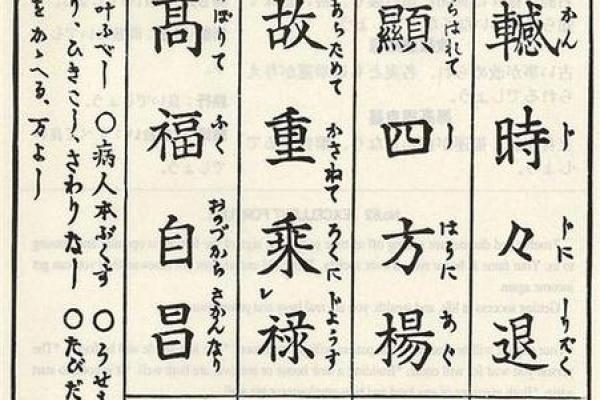 かん じ じに しりぞく
轗時々退
らはれて し はうに あぐ
顯四方揚
あらためて かさねて ろくに じようす
故重乘レ禄
ぼりて ふく おのづから さかんなり
髙福自昌
叶ふべし ○病人本ぶくす ○うせも
り、ひきこし、さわりなし ○たびだ
をかゝへる、万よし